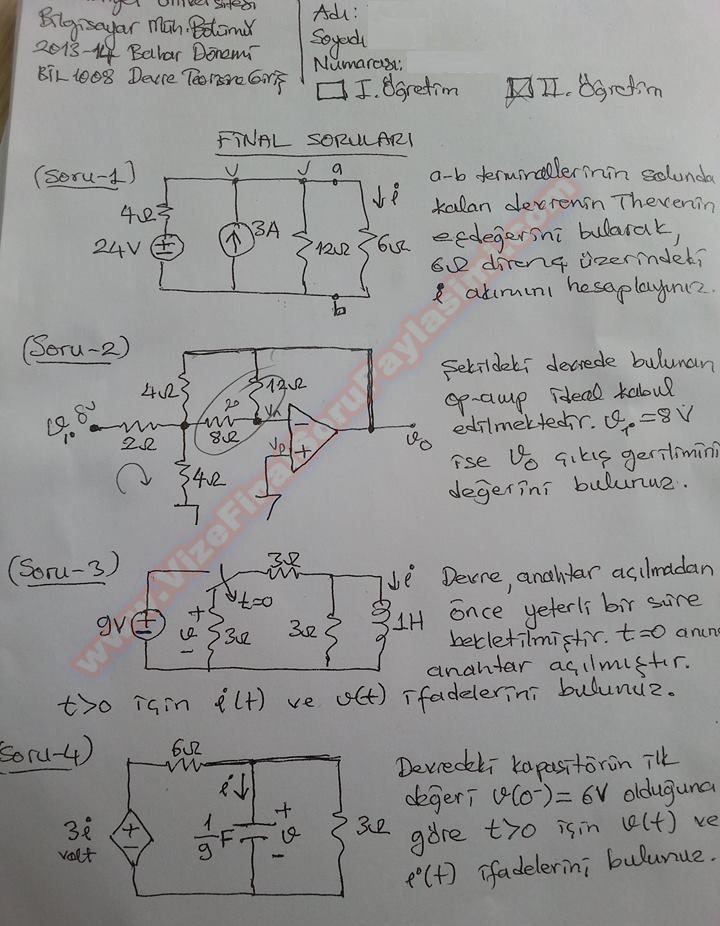 Bilgisayar Müh. Bölümü
2013-14 Bahar Dönemi
BİL1008 Devre Teorisine Giriş
Adı:
Soyadı
Numarası:
I. Öğretim
II. Öğretim
FİNAL SORULARI
(Soru-1)
4Ω
24V
3A
12Ω
6Ω
V
V
a
b
i
a-b terminallerinin solunda
kalan devrenin Thevenin
eşdeğerini bularak,
6Ω direnç üzerindeki
i akımını hesaplayınız.
(Soru-2)
4Ω
12Ω
8V
2Ω
20
8Ω
4Ω
Vn
Vp
-
+
v₀
Şekildeki devrede bulunan
op-amp ideal kabul
edilmektedir. =8V
ise v₀ çıkış gerilimini
değerini bulunuz.
(Soru-3)
9V
+
v
-
t=0
3Ω
3Ω
3Ω
i
1H
Devre, anahtar açılmadan
önce yeterli bir süre
bekletilmiştir. t=0 anın
anahtar açılmıştır.
t>0 için i(t) ve v(t) ifadelerini bulunuz.
Soru-4)
6Ω
3i
volt
i
1/9 F
+
v
-
3Ω
Devredeki kapasitörün ilk
değeri v(0⁻)= 6V olduğuna
göre t>0 için v(t) ve
i(t) ifadelerini bulunuz.
www.VizeFinalSoruPaylasimi.com